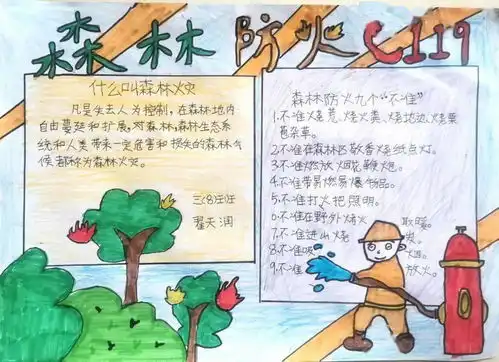 森林防火119
什么叫森林火灾
凡是失去人为控制,在森林地内
自由蔓延和扩展,对森林,森林生态系
统和人类带来一定危害和损失的森林气
候都称为森林火灾。
三(8)班
翟天润
森林防火九个“不准”
1.不准烧荒、烧火粪、烧地边、烧粟
苞杂草。
2.不准在森林区敬香烧纸点灯。
3.不准燃放烟花鞭炮。
4.不准带易燃易爆物品。
5.不准打火把照明。
6.不准在野外烤火 取暖。
7.不准进山烧 炭。
8.不准吸 烟。
9.不准 放火。